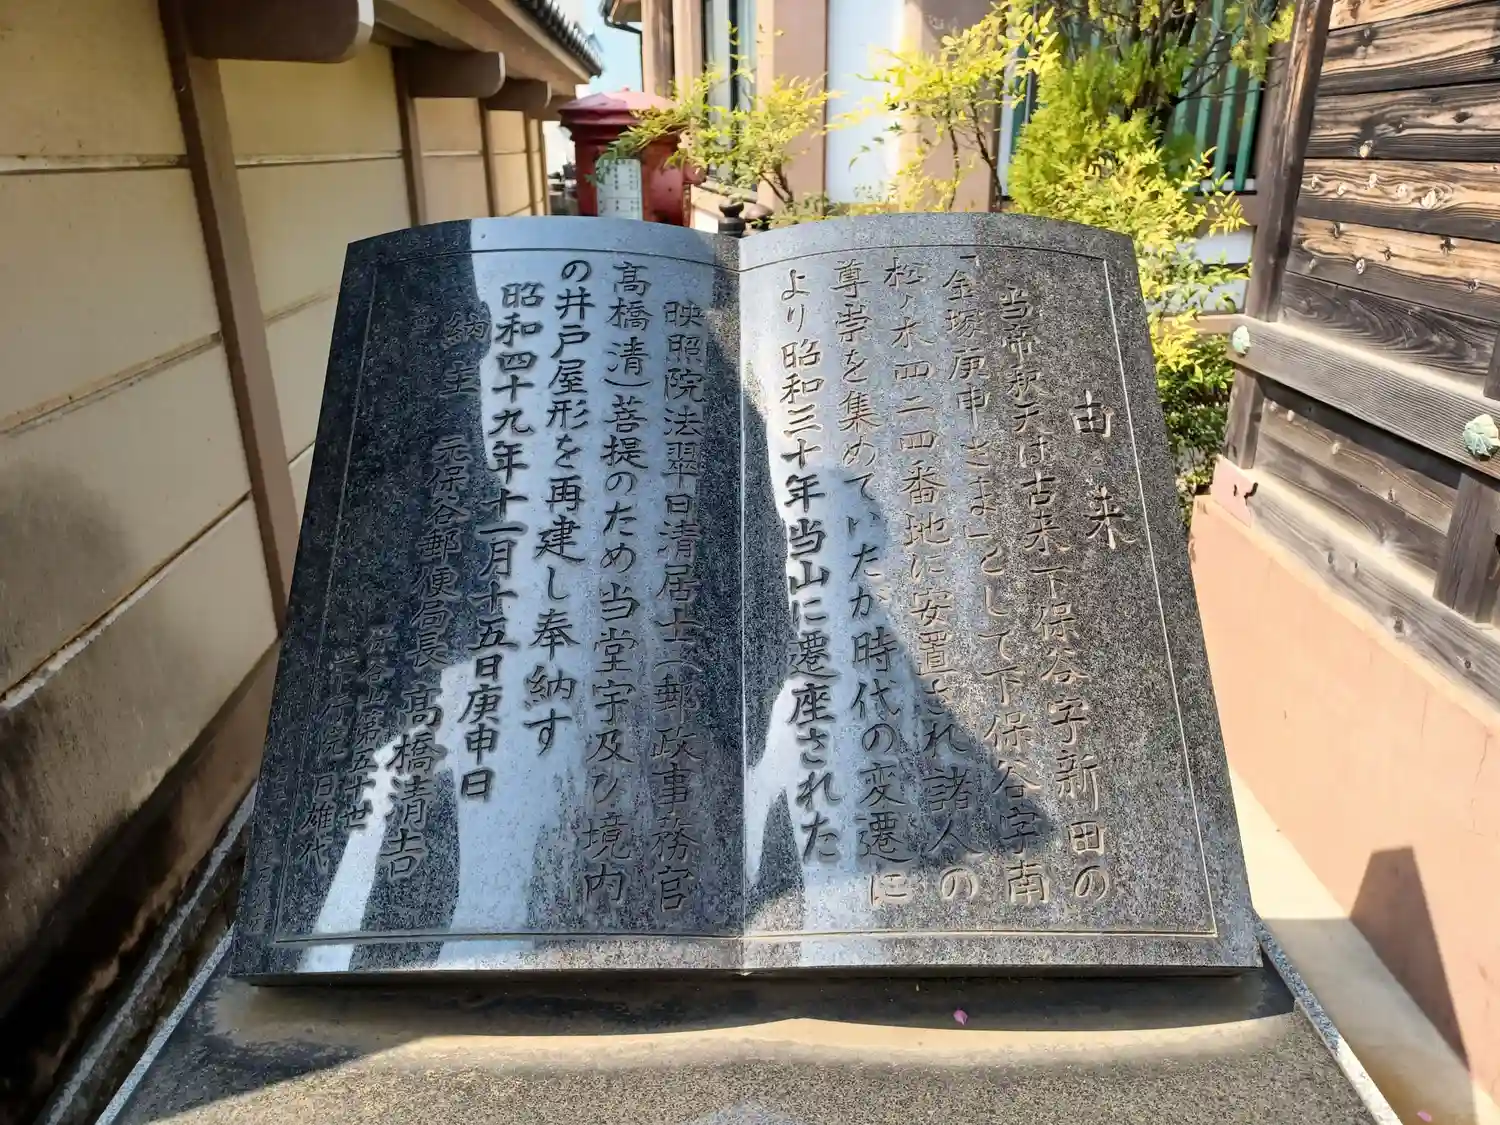 由来
当帝釈天は古来下保谷字新田の
「金塚庚申さま」として下保谷字南
松ノ木四二四番地に安置され諸人の
尊崇を集めていたが時代の変遷に
より昭和三十年当山に遷座された
映照院法翠日清居士(郵政事務官
髙橋清)菩提のため当堂宇及び境内
の井戸屋形を再建し奉納す
昭和四十九年十一月十五日庚申日
納主 元保谷郵便局長 髙橋清吉
谷山第五十世
院日雄代